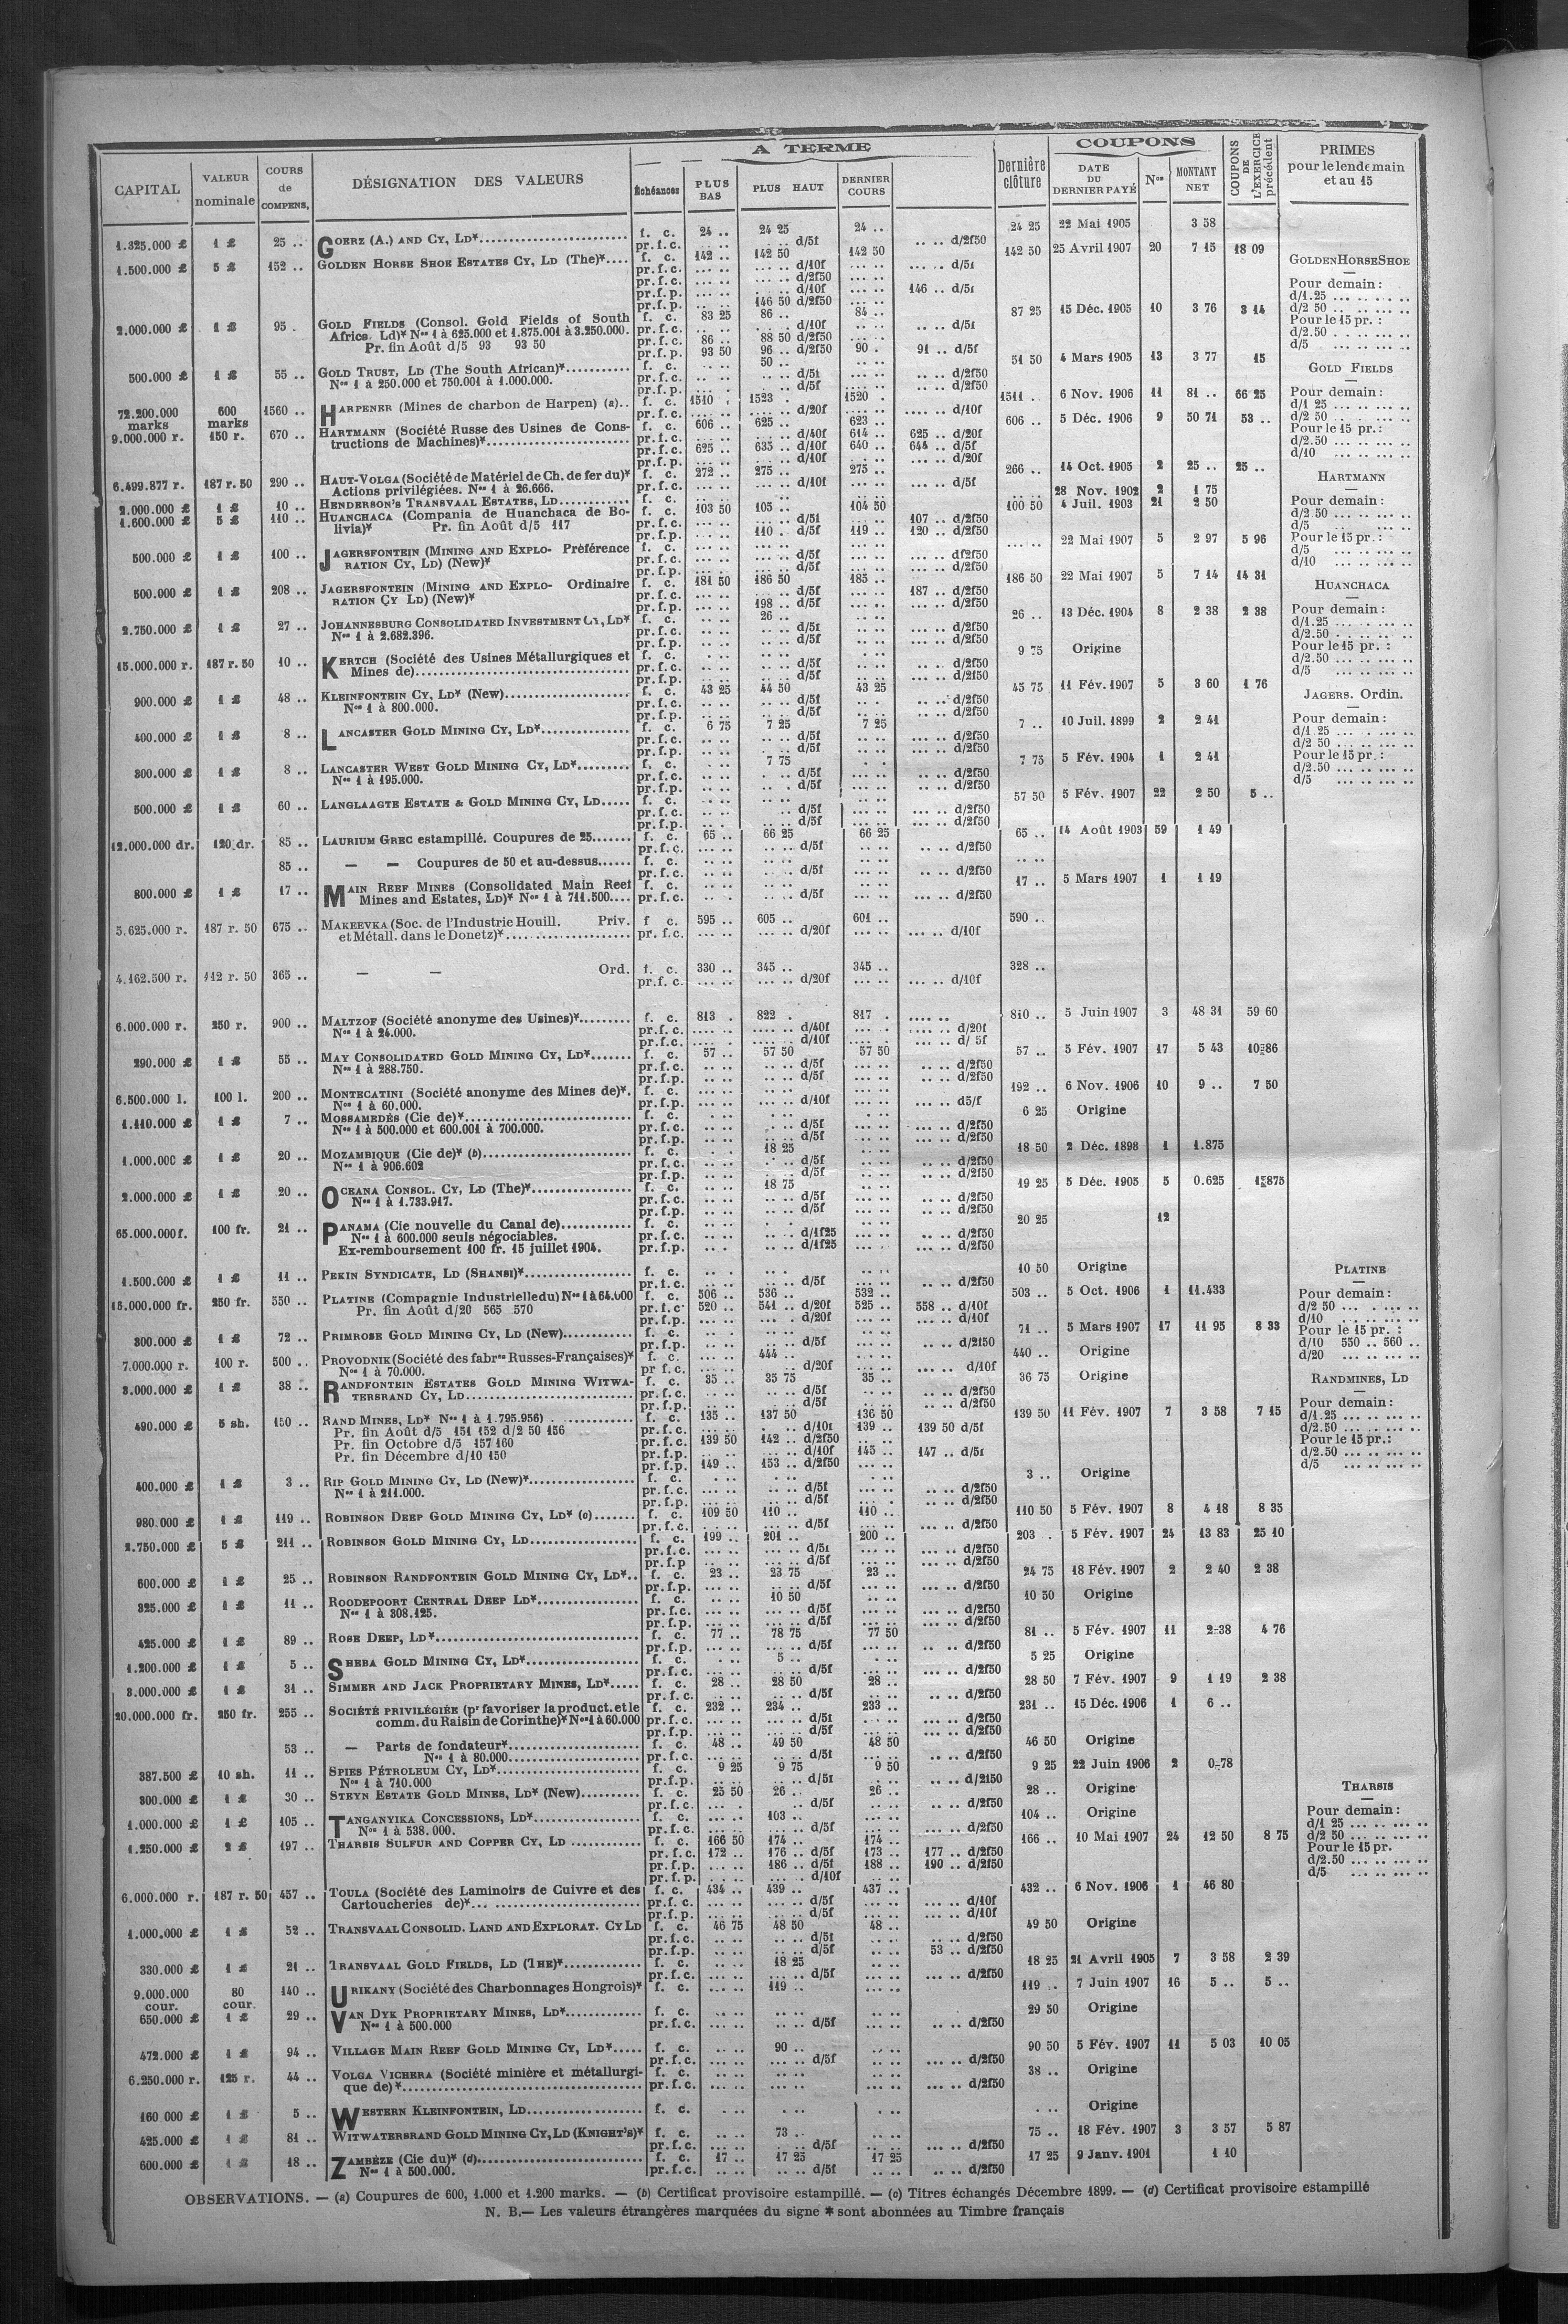 A TERME
COUPONS
CAPITAL
VALEUR nominale
COURS de COMPENS.
DÉSIGNATION DES VALEURS
Échéances
PLUS BAS
PLUS HAUT
DERNIER COURS
Dernière clôture
DATE DU DERNIER PAYÉ
Nos
MONTANT NET
COUPONS DE L'EXERCICE précédent
PRIMES pour le lendemain et au 15
1.325.000 £ 1 £ 25 .. GOERZ (A.) AND CY, LD* f. c. 24 .. 24 25 24 .. 24 25 22 Mai 1905 3 58
pr.f.c. d/5f d/2f50
1.500.000 £ 5 £ 152 .. GOLDEN HORSE SHOE ESTATES CY, LD (THE)* f. c. 142 .. 142 50 142 50 142 50 25 Avril 1907 20 7 15 18 09
pr.f.c. d/10f d/5f
pr.f.c. d/2f50
pr.f.p. d/10f 146 .. d/5f
pr.f.p. 146 50 d/2f50
2.000.000 £ 1 £ 95 . GOLD FIELDS (Consol. Gold Fields of South f. c. 83 25 86 .. 84 .. 87 25 15 Déc. 1905 10 3 76 3 14
Africa Ld)* Nos 1 à 625.000 et 1.875.001 à 3.250.000. pr.f.c. d/10f d/5f
Pr. fin Août d/5 93 93 50 pr.f.c. 86 .. 88 50 d/2f50
pr.f.p. 93 50 96 .. d/2f50 90 . 91 .. d/5f
500.000 £ 1 £ 55 .. GOLD TRUST, LD (The South African)* f. c. 50 .. 51 50 4 Mars 1905 13 3 77 15
Nos 1 à 250.000 et 750.001 à 1.000.000. pr.f.c. d/5f d/2f50
pr.f.p. d/5f d/2f50
72.200.000 marks 600 marks 1560 .. HARPENER (Mines de charbon de Harpen) (a).. f. c. 1510 . 1523 . 1520 . 1511 . 6 Nov. 1906 11 81 .. 66 25
pr.f.c. d/20f d/10f
9.000.000 r. 150 r. 670 .. HARTMANN (Société Russe des Usines de Cons- f. c. 606 .. 625 .. 623 .. 606 .. 5 Déc. 1906 9 50 71 53 ..
tructions de Machines)* pr.f.c. d/40f 614 .. 625 .. d/20f
pr.f.c. 625 .. 635 .. d/10f 640 .. 644 .. d/5f
pr.f.p. d/10f d/20f
6.499.877 r. 187 r. 50 290 .. HAUT-VOLGA (Société de Matériel de Ch. de fer du)* f. c. 272 .. 275 .. 275 .. 266 .. 14 Oct. 1905 2 25 .. 25 ..
Actions privilégiées. Nos 1 à 26.666. pr.f.c. d/10f d/5f
2.000.000 £ 1 £ 10 .. HENDERSON'S TRANSVAAL ESTATES, LD f. c. 28 Nov. 1902 2 1 75
1.600.000 £ 5 £ 110 .. HUANCHACA (Compania de Huanchaca de Bo- f. c. 103 50 105 .. 104 50 100 50 4 Juil. 1903 21 2 50
livia)* Pr. fin Août d/5 117 pr.f.c. d/5f 107 .. d/2f50
pr.f.p. 110 . d/5f 119 .. 120 .. d/2f50
500.000 £ 1 £ 100 .. JAGERSFONTEIN (MINING AND EXPLO- Préférence f. c. 22 Mai 1907 5 2 97 5 96
RATION CY, LD) (New)* pr.f.c. d/5f df2f50
pr.f.p. d/5f d/2f50
500.000 £ 1 £ 208 .. JAGERSFONTEIN (MINING AND EXPLO- Ordinaire f. c. 181 50 186 50 185 .. 186 50 22 Mai 1907 5 7 14 14 31
RATION CY LD) (New)* pr.f.c. d/5f 187 .. d/2f50
pr.f.p. 198 .. d/5f d/2f50
2.750.000 £ 1 £ 27 .. JOHANNESBURG CONSOLIDATED INVESTMENT CY, LD* f. c. 26 .. 26 .. 13 Déc. 1904 8 2 38 2 38
Nos 1 à 2.682.396. pr.f.c. d/5f d/2f50
pr.f.p. d/5f d/2f50
15.000.000 r. 187 r. 50 10 .. KERTCH (Société des Usines Métallurgiques et f. c. 9 75 Origine
Mines de) pr.f.c. d/5f d/2f50
pr.f.p. d/5f d/2f50
900.000 £ 1 £ 48 .. KLEINFONTEIN CY, LD* (New) f. c. 43 25 44 50 43 25 45 75 11 Fév. 1907 5 3 60 1 76
Nos 1 à 800.000. pr.f.c. d/5f d/2f50
pr.f.p. d/5f d/2f50
400.000 £ 1 £ 8 .. LANCASTER GOLD MINING CY, LD* f. c. 6 75 7 25 7 25 7 .. 10 Juil. 1899 2 2 41
pr.f.c. d/5f d/2f50
pr.f.p. d/5f d/2f50
300.000 £ 1 £ 8 .. LANCASTER WEST GOLD MINING CY, LD* f. c. 7 75 7 75 5 Fév. 1904 1 2 41
Nos 1 à 195.000. pr.f.c. d/5f d/2f50
pr.f.p. d/5f d/2f50
500.000 £ 1 £ 60 .. LANGLAAGTE ESTATE & GOLD MINING CY, LD f. c. 57 50 5 Fév. 1907 22 2 50 5 ..
pr.f.c. d/5f d/2f50
pr.f.p. d/5f d/2f50
12.000.000 dr. 120 dr. 85 .. LAURIUM GREC estampillé. Coupures de 25 f. c. 65 .. 66 25 66 25 65 .. 14 Août 1903 59 1 49
pr.f.c. d/5f d/2f50
85 .. — — Coupures de 50 et au-dessus f. c.
pr.f.c. d/5f d/2f50
800.000 £ 1 £ 17 .. MAIN REEF MINES (Consolidated Main Reef f. c. 17 .. 5 Mars 1907 1 1 19
Mines and Estates, LD)* Nos 1 à 711.500 pr.f.c. d/5f d/2f50
5.625.000 r. 187 r. 50 675 .. MAKEEVKA (Soc. de l'Industrie Houill. Priv. f. c. 595 .. 605 .. 601 .. 590 ..
et Métall. dans le Donetz)* pr.f.c. d/20f d/10f
4.162.500 r. 112 r. 50 365 .. — — Ord. f. c. 330 .. 345 .. 345 .. 328 ..
pr.f.c. d/20f d/10f
6.000.000 r. 250 r. 900 .. MALTZOF (Société anonyme des Usines)* f. c. 813 . 822 . 817 . 810 .. 5 Juin 1907 3 48 31 59 60
Nos 1 à 24.000. pr.f.c. d/40f d/20f
pr.f.c. d/10f d/ 5f
290.000 £ 1 £ 55 .. MAY CONSOLIDATED GOLD MINING CY, LD* f. c. 57 .. 57 50 57 50 57 .. 5 Fév. 1907 17 5 43 10=86
Nos 1 à 288.750. pr.f.c. d/5f d/2f50
pr.f.p. d/5f d/2f50
6.500.000 l. 100 l. 200 .. MONTECATINI (Société anonyme des Mines de)*. f. c. 192 .. 6 Nov. 1906 10 9 .. 7 50
Nos 1 à 60.000. pr.f.p. d/10f d5/f
1.110.000 £ 1 £ 7 .. MOSSAMEDÈS (Cie de)* f. c. 6 25 Origine
Nos 1 à 500.000 et 600.001 à 700.000. pr.f.c. d/5f d/2f50
pr.f.p. d/5f d/2f50
1.000.000 £ 1 £ 20 .. MOZAMBIQUE (Cie de)* (b) f. c. 18 25 18 50 2 Déc. 1898 1 1.875
Nos 1 à 906.602 pr.f.c. d/5f d/2f50
pr.f.p. d/5f d/2f50
2.000.000 £ 1 £ 20 .. OCEANA CONSOL. CY, LD (The)* f. c. 18 75 19 25 5 Déc. 1905 5 0.625 1=875
Nos 1 à 1.733.917. pr.f.c. d/5f d/2f50
pr.f.p. d/5f d/2f50
65.000.000f. 100 fr. 21 .. PANAMA (Cie nouvelle du Canal de) f. c. 20 25 12
Nos 1 à 600.000 seuls négociables. pr.f.c. d/1f25 d/2f50
Ex-remboursement 100 fr. 15 juillet 1904. pr.f.p. d/1f25 d/2f50
1.500.000 £ 1 £ 11 .. PEKIN SYNDICATE, LD (SHANSI)* f. c. 10 50 Origine
pr.f.c. d/5f d/2f50
16.000.000 fr. 250 fr. 550 .. PLATINE (Compagnie Industrielle du) Nos 1 à 64.000 f. c. 506 .. 536 .. 532 .. 503 .. 5 Oct. 1906 1 11.433
Pr. fin Août d/20 565 570 pr.f.c. 520 .. 541 .. d/20f 525 .. 558 .. d/10f
pr.f.p. d/20f d/10f
300.000 £ 1 £ 72 .. PRIMROSE GOLD MINING CY, LD (New) f. c. 71 .. 5 Mars 1907 17 11 95 8 33
pr.f.p. d/5f d/2f50
7.000.000 r. 100 r. 500 .. PROVODNIK (Société des fabres Russes-Françaises)* f. c. 444 .. 440 .. Origine
Nos 1 à 70.000. pr.f.c. d/20f d/10f
3.000.000 £ 1 £ 38 .. RANDFONTEIN ESTATES GOLD MINING WITWA- f. c. 35 .. 35 75 35 .. 36 75 Origine
TERSRAND CY, LD pr.f.c. d/5f d/2f50
pr.f.p. d/5f d/2f50
490.000 £ 5 sh. 150 .. RAND MINES, LD* Nos 1 à 1.795.956) f. c. 135 .. 137 50 136 50 139 50 11 Fév. 1907 7 3 58 7 15
Pr. fin Août d/5 151 152 d/2 50 156 pr.f.c. d/10f 139 .. 139 50 d/5f
Pr. fin Octobre d/5 157 160 pr.f.c. 139 50 142 .. d/2f50
Pr. fin Décembre d/10 150 pr.f.p. d/10f 145 .. 147 .. d/5f
pr.f.p. 149 .. 153 .. d/2f50
400.000 £ 1 £ 3 .. RIP GOLD MINING CY, LD (New)* f. c. 3 .. Origine
Nos 1 à 211.000. pr.f.c. d/5f d/2f50
pr.f.p. d/5f d/2f50
980.000 £ 1 £ 119 .. ROBINSON DEEP GOLD MINING CY, LD* (c) f. c. 109 50 110 .. 110 .. 110 50 5 Fév. 1907 8 4 18 8 35
pr.f.c. d/5f d/2f50
2.750.000 £ 5 £ 211 .. ROBINSON GOLD MINING CY, LD f. c. 199 .. 201 .. 200 .. 203 . 5 Fév. 1907 24 13 83 25 10
pr.f.c. d/5f d/2f50
pr.f.p d/5f d/2f50
600.000 £ 1 £ 25 .. ROBINSON RANDFONTEIN GOLD MINING CY, LD*.. f. c. 23 .. 23 75 23 .. 24 75 18 Fév. 1907 2 2 40 2 38
pr.f.p. d/5f d/2f50
325.000 £ 1 £ 11 .. ROODEPOORT CENTRAL DEEP LD* f. c. 10 50 10 50 Origine
Nos 1 à 308.125. pr.f.c. d/5f d/2f50
pr.f.p. d/5f d/2f50
425.000 £ 1 £ 89 .. ROSE DEEP, LD* f. c. 77 .. 78 75 77 50 81 .. 5 Fév. 1907 11 2-38 4 76
pr.f.p. d/5f d/2f50
1.200.000 £ 1 £ 5 .. SHEBA GOLD MINING CY, LD* f. c. 5 .. 5 25 Origine
pr.f.c. d/5f d/2f50
3.000.000 £ 1 £ 31 .. SIMMER AND JACK PROPRIETARY MINES, LD* f. c. 28 .. 28 50 28 .. 28 50 7 Fév. 1907 9 1 19 2 38
pr.f.c. d/5f d/2f50
20.000.000 fr. 250 fr. 255 .. SOCIÉTÉ PRIVILÉGIÉE (pr favoriser la product. et le f. c. 232 .. 234 .. 233 .. 231 .. 15 Déc. 1906 1 6 ..
comm. du Raisin de Corinthe)* Nos 1 à 60.000 pr.f.c. d/5f d/2f50
pr.f.p. d/5f d/2f50
53 .. — Parts de fondateur* f. c. 48 .. 49 50 48 50 46 50 Origine
Nos 1 à 80.000 pr.f.c. d/5f d/2f50
387.500 £ 10 sh. 11 .. SPIES PÉTROLEUM CY, LD* f. c. 9 25 9 75 9 50 9 25 22 Juin 1906 2 0-78
Nos 1 à 710.000 pr.f.p. d/5f d/2f50
300.000 £ 1 £ 30 .. STEYN ESTATE GOLD MINES, LD* (New) f. c. 25 50 26 .. 26 .. 28 .. Origine
pr.f.c. d/5f d/2f50
1.000.000 £ 1 £ 105 .. TANGANYIKA CONCESSIONS, LD* f. c. 103 .. 104 .. Origine
Nos 1 à 538.000. pr.f.c. d/5f d/2f50
1.250.000 £ 2 £ 197 .. THARSIS SULFUR AND COPPER CY, LD f. c. 166 50 174 .. 174 .. 166 .. 10 Mai 1907 24 12 50 8 75
pr.f.c. 172 .. 176 .. d/5f 173 .. 177 .. d/2f50
pr.f.p. 186 .. d/5f 188 .. 190 .. d/2f50
pr.f.p. d/10f
6.000.000 r. 187 r. 50 457 .. TOULA (Société des Laminoirs de Cuivre et des f. c. 434 .. 439 .. 437 .. 432 .. 6 Nov. 1906 1 46 80
Cartoucheries de)* pr.f.c. d/5f d/10f
pr.f.p. d/5f d/10f
1.000.000 £ 1 £ 52 .. TRANSVAAL CONSOLID. LAND AND EXPLORAT. CY LD f. c. 46 75 48 50 48 .. 49 50 Origine
pr.f.c. d/5f d/2f50
pr.f.p. d/5f 53 .. d/2f50
330.000 £ 1 £ 21 .. TRANSVAAL GOLD FIELDS, LD (THE)* f. c. 18 25 18 25 21 Avril 1905 7 3 58 2 39
pr.f.c. d/5f d/2f50
9.000.000 cour. 80 cour. 140 .. URIKANY (Société des Charbonnages Hongrois)* f. c. 119 .. 119 .. 7 Juin 1907 16 5 .. 5 ..
650.000 £ 1 £ 29 .. VAN DYK PROPRIETARY MINES, LD* f. c. 29 50 Origine
Nos 1 à 500.000 pr.f.c. d/5f d/2f50
472.000 £ 1 £ 94 .. VILLAGE MAIN REEF GOLD MINING CY, LD* f. c. 90 .. 90 50 5 Fév. 1907 11 5 03 10 05
pr.f.c. d/5f d/2f50
6.250.000 r. 125 r. 44 .. VOLGA VICHERA (Société minière et métallurgi- f. c. 38 .. Origine
que de)* pr.f.c. d/2f50
160 000 £ 1 £ 5 .. WESTERN KLEINFONTEIN, LD f. c. Origine
425.000 £ 1 £ 81 .. WITWATERSRAND GOLD MINING CY, LD (KNIGHT'S)* f. c. 73 .. 75 .. 18 Fév. 1907 3 3 57 5 87
pr.f.c. d/5f d/2f50
600.000 £ 1 £ 18 .. ZAMBÈZE (Cie du)* (d) f. c. 17 .. 17 25 17 25 17 25 9 Janv. 1901 1 10
Nos 1 à 500.000. pr.f.c. d/5f d/2f50
GOLDEN HORSE SHOE
Pour demain :
d/1.25
d/2 50
Pour le 15 pr. :
d/2.50
d/5
GOLD FIELDS
Pour demain :
d/1 25
d/2 50
Pour le 15 pr. :
d/2.50
d/10
HARTMANN
Pour demain :
d/2 50
d/5
Pour le 15 pr. :
d/5
d/10
HUANCHACA
Pour demain :
d/1.25
d/2.50
Pour le 15 pr. :
d/2.50
d/5
JAGERS. Ordin.
Pour demain :
d/1 25
d/2 50
Pour le 15 pr. :
d/2.50
d/5
PLATINE
Pour demain :
d/2 50
d/10
Pour le 15 pr. :
d/10 550 .. 560 ..
d/20
RANDMINES, LD
Pour demain :
d/1.25
d/2.50
Pour le 15 pr. :
d/2.50
d/5
THARSIS
Pour demain :
d/1 25
d/2 50
Pour le 15 pr.
d/2.50
d/5
OBSERVATIONS. — (a) Coupures de 600, 1.000 et 1.200 marks. — (b) Certificat provisoire estampillé. — (c) Titres échangés Décembre 1899. — (d) Certificat provisoire estampillé
N. B.— Les valeurs étrangères marquées du signe * sont abonnées au Timbre français